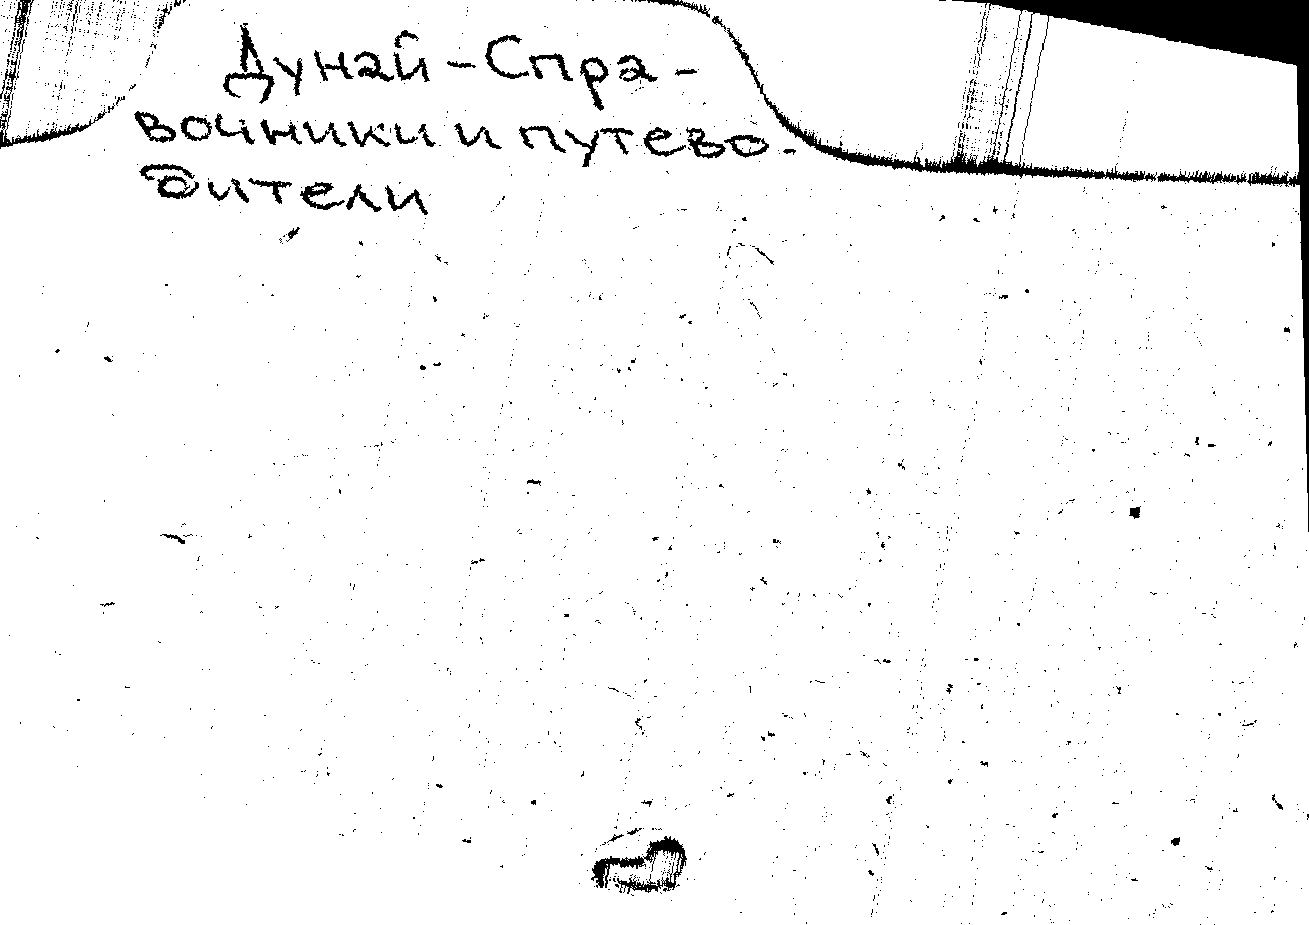 Дунай - Спра -
вочники и путево -
дители